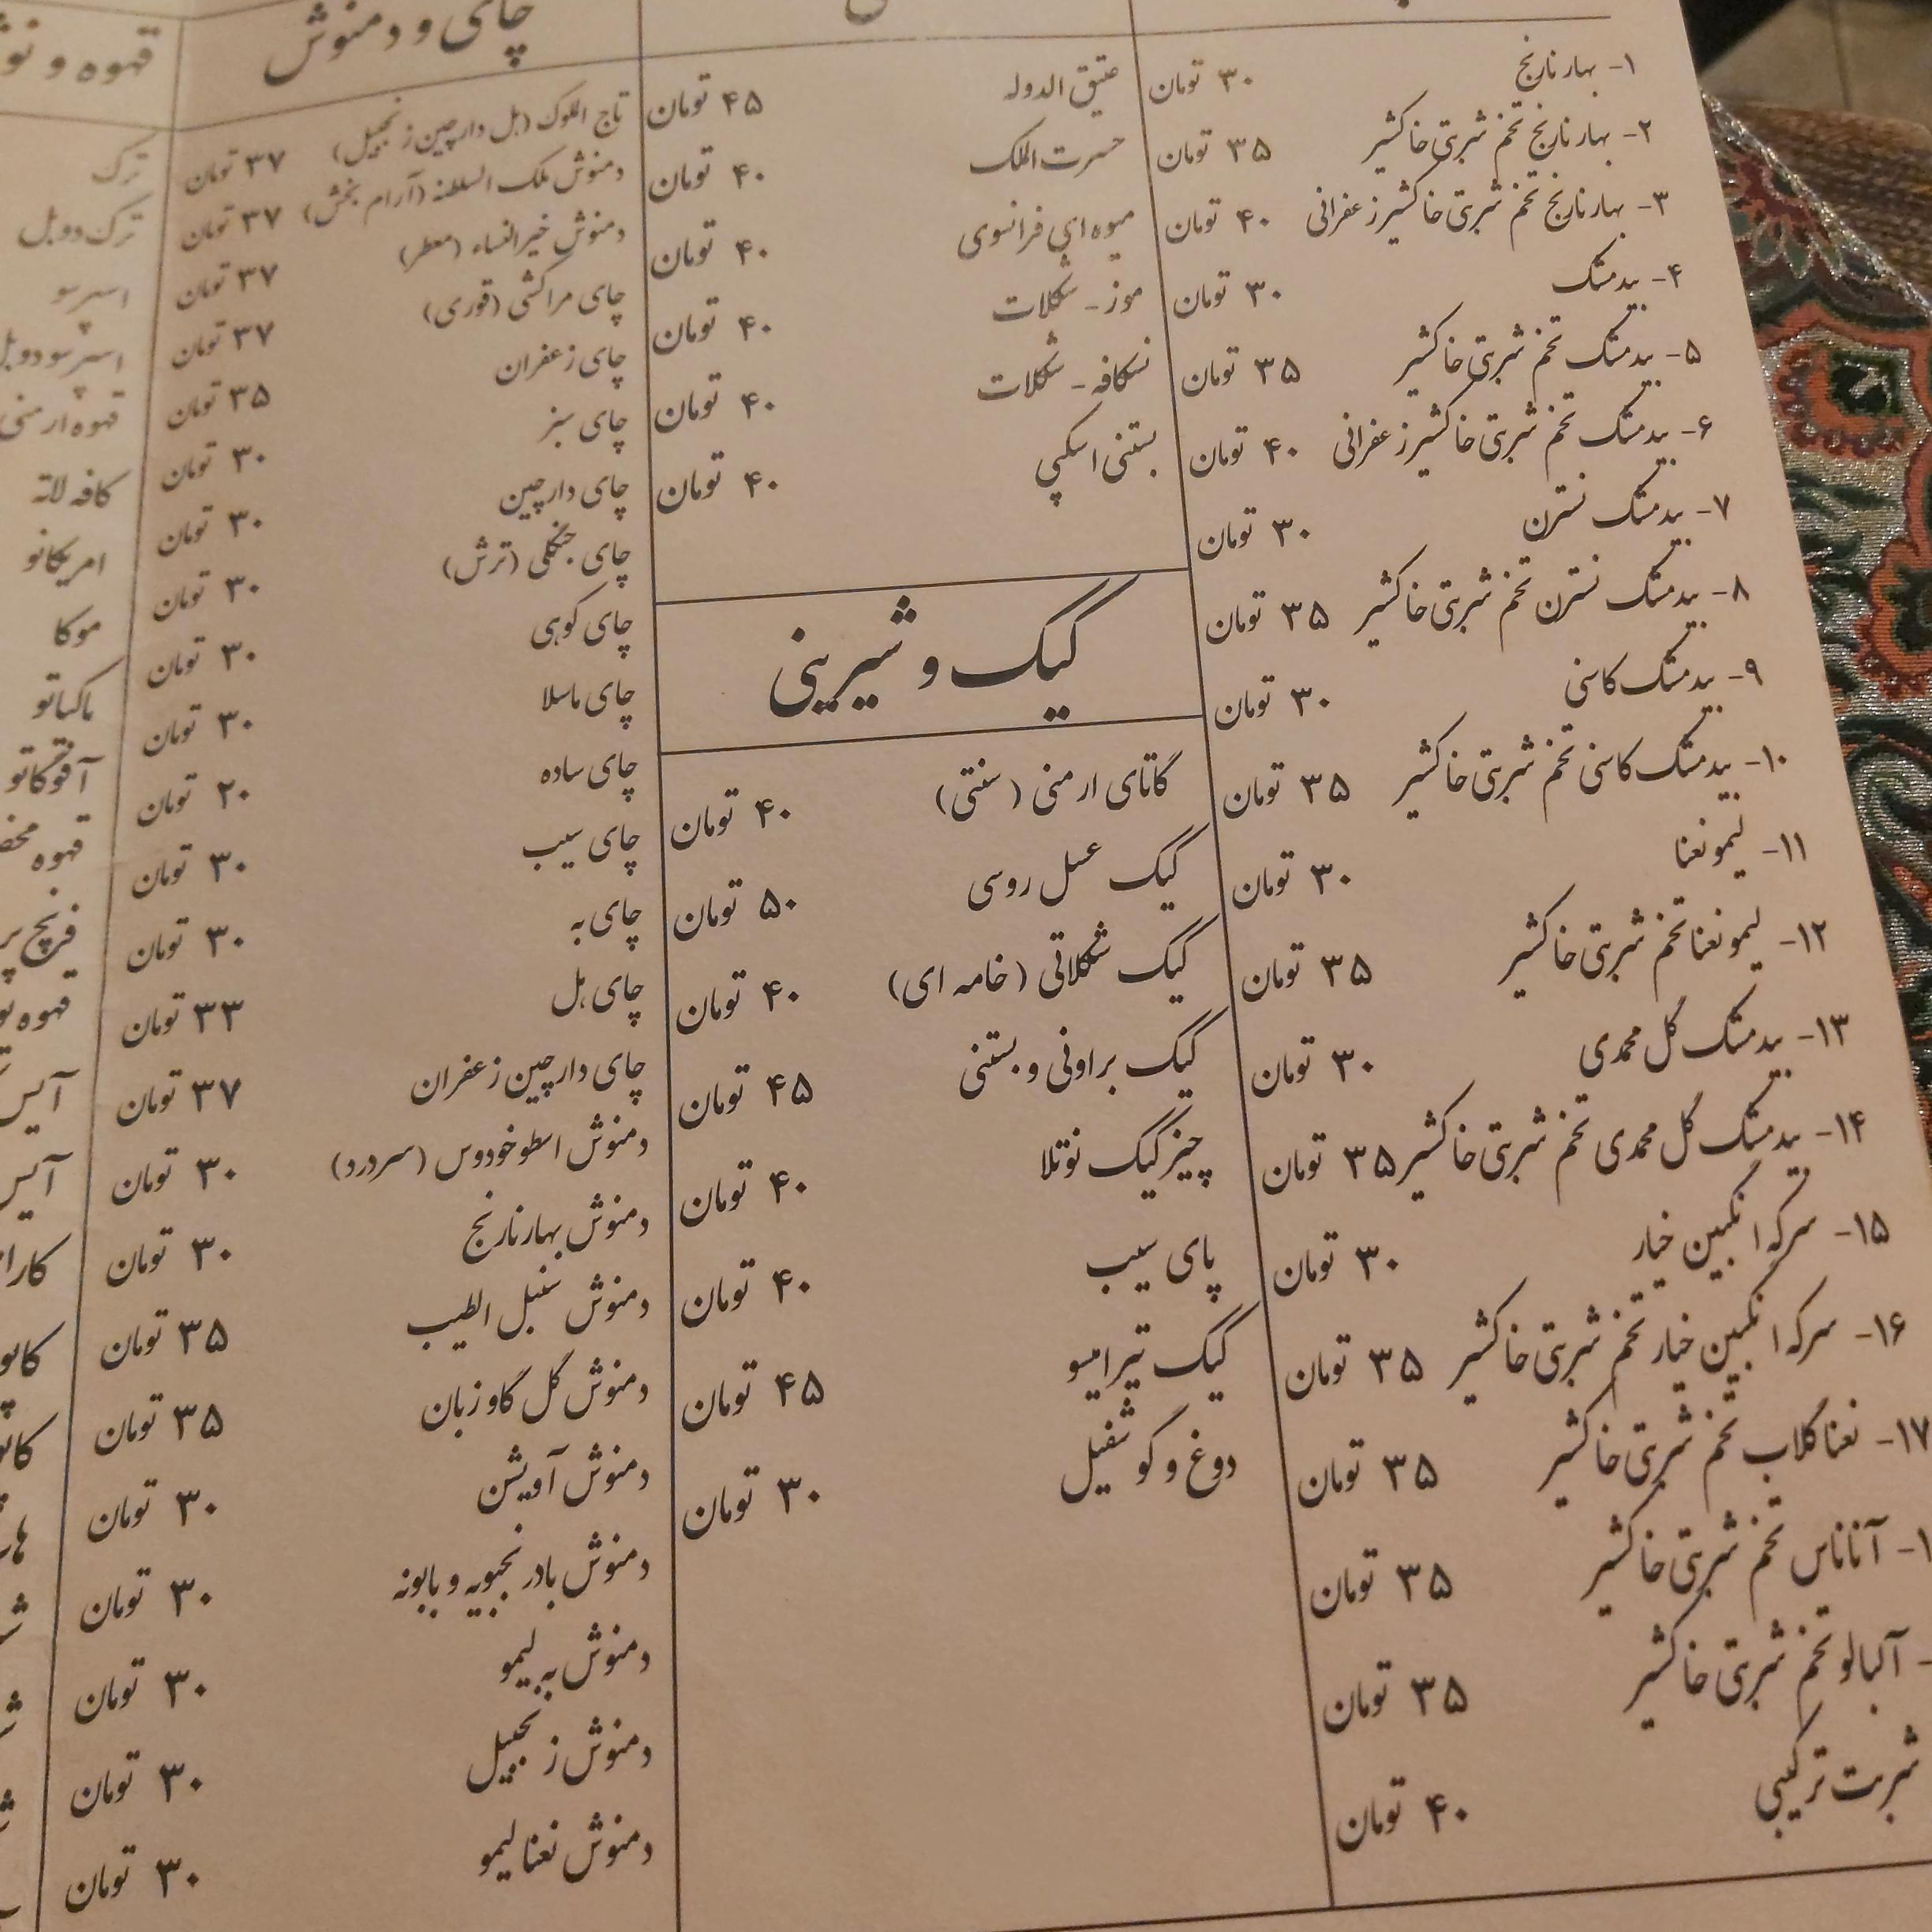 ۱- بهارنارنج ۳۰ تومان
۲- بهارنارنج تخم شربتی خاکشیر ۳۵ تومان
۳- بهارنارنج تخم شربتی خاکشیر زعفرانی ۴۰ تومان
۴- بیدمشک ۳۰ تومان
۵- بیدمشک تخم شربتی خاکشیر ۳۵ تومان
۶- بیدمشک تخم شربتی خاکشیر زعفرانی ۴۰ تومان
۷- بیدمشک نسترن ۳۰ تومان
۸- بیدمشک نسترن تخم شربتی خاکشیر ۳۵ تومان
۹- بیدمشک کاسنی ۳۰ تومان
۱۰- بیدمشک کاسنی تخم شربتی خاکشیر ۳۵ تومان
۱۱- لیمو نعنا ۳۰ تومان
۱۲- لیمو نعنا تخم شربتی خاکشیر ۳۵ تومان
۱۳- بیدمشک گل محمدی ۳۰ تومان
۱۴- بیدمشک گل محمدی تخم شربتی خاکشیر ۳۵ تومان
۱۵- سرکه انگبین خیار ۳۰ تومان
۱۶- سرکه انگبین خیار تخم شربتی خاکشیر ۳۵ تومان
۱۷- نعنا گلاب تخم شربتی خاکشیر ۳۵ تومان
- آناناس تخم شربتی خاکشیر ۳۵ تومان
- آلبالو تخم شربتی خاکشیر ۳۵ تومان
شربت ترکیبی ۴۰ تومان
عتیق الدوله ۴۵ تومان
حسرت الملک ۴۰ تومان
میوه ای فرانسوی ۴۰ تومان
موز - شکلات ۴۰ تومان
نسکافه - شکلات ۴۰ تومان
بستنی اسکپی ۴۰ تومان
کیک و شیرینی
گاتای ارمنی (سنتی) ۴۰ تومان
کیک عسل روسی ۵۰ تومان
کیک شکلاتی (خامه ای) ۴۰ تومان
کیک براونی و بستنی ۴۵ تومان
چیزکیک نوتلا ۴۰ تومان
پای سیب ۴۰ تومان
کیک تیرامیسو ۴۵ تومان
دوغ و گوشفیل ۳۰ تومان
چای و دمنوش
تاج الملوک (هل دارچین زنجبیل) ۳۷ تومان
دمنوش ملک السلطنه (آرام بخش) ۳۷ تومان
دمنوش خیرالنساء (معطر) ۳۷ تومان
چای مراکشی (قوری) ۳۷ تومان
چای زعفران ۳۵ تومان
چای سبز ۳۰ تومان
چای دارچین ۳۰ تومان
چای جنگلی (ترش) ۳۰ تومان
چای کوهی ۳۰ تومان
چای ماسلا ۳۰ تومان
چای ساده ۲۰ تومان
چای سیب ۳۰ تومان
چای به ۳۰ تومان
چای هل ۳۳ تومان
چای دارچین زعفران ۳۷ تومان
دمنوش اسطوخودوس (سردرد) ۳۰ تومان
دمنوش بهارنارنج ۳۰ تومان
دمنوش سنبل الطیب ۳۵ تومان
دمنوش گل گاوزبان ۳۵ تومان
دمنوش آویشن ۳۰ تومان
دمنوش بادرنجبویه و بابونه ۳۰ تومان
دمنوش به لیمو ۳۰ تومان
دمنوش زنجبیل ۳۰ تومان
دمنوش نعنا لیمو ۳۰ تومان
قهوه و
ترک
ترک دوبل
اسپرسو
اسپرسو دوبل
قهوه ارمنی
کافه لاته
امریکانو
موکا
ماکیاتو
آفوگاتو
قهوه
قهوه
آیس
آیس